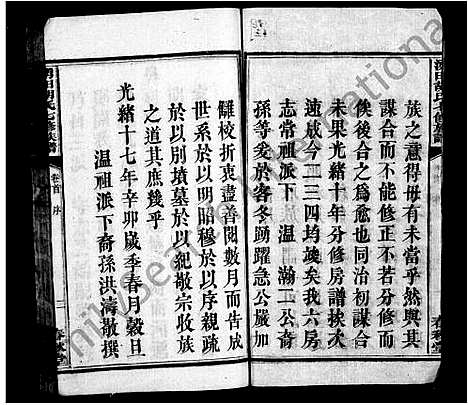 族之意得毋有未當乎然與其
謀合而不能修正不若分修而
俟後合之爲愈也同治初謀合
未果光緒十年分修房譜挨次
速成今二三四均竣矣我六房
志常祖派下温瀚二公裔
孫等爰於客冬踴躍急公嚴加
讎校折衷盡善閱數月而告成
世系於以明昭穆於以序親疏
於以別墳墓於以紀敬宗收族
之道其庶幾乎
光緒十七年辛卯歲季春月穀旦
温祖派下裔孫洪濤敬撰
卷首 序
二